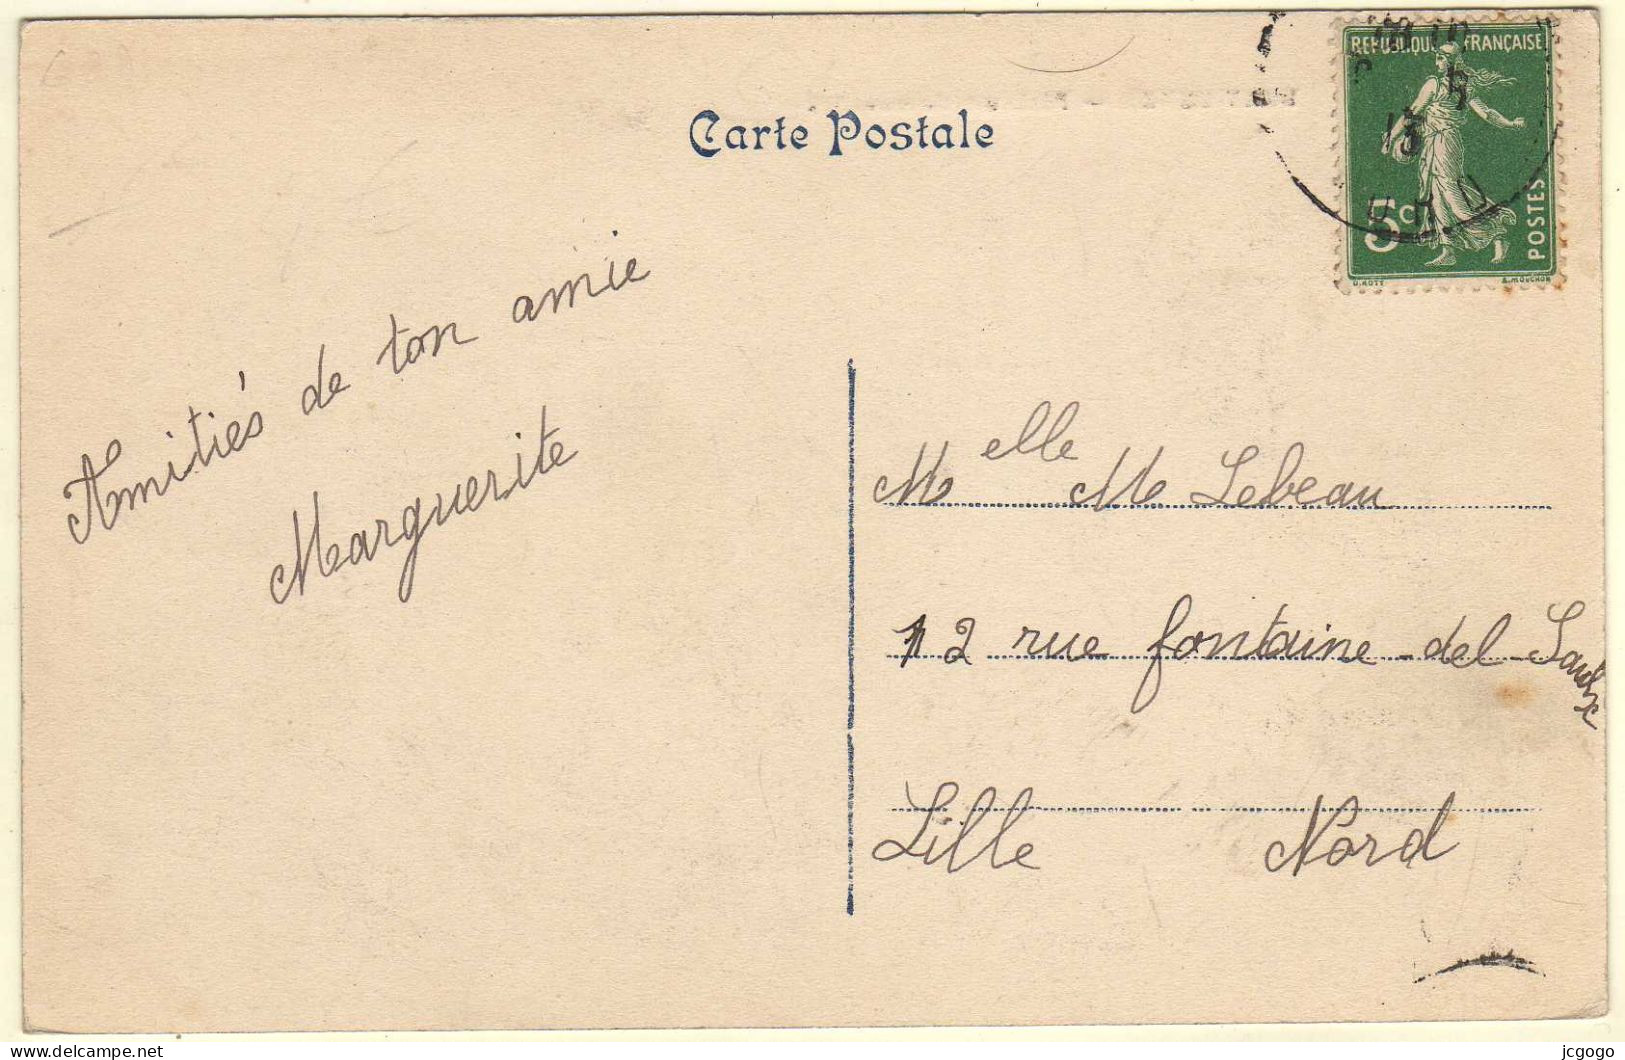 Carte Postale
REPUBLIQUE FRANÇAISE
5c
POSTES
O. ROTY
E. MOUCHON
Amitiés de ton amie
Marguerite
Melle M Lebeau
12 rue fontaine-del-Saulx
Lille Nord
jcgogo
delcampe.net